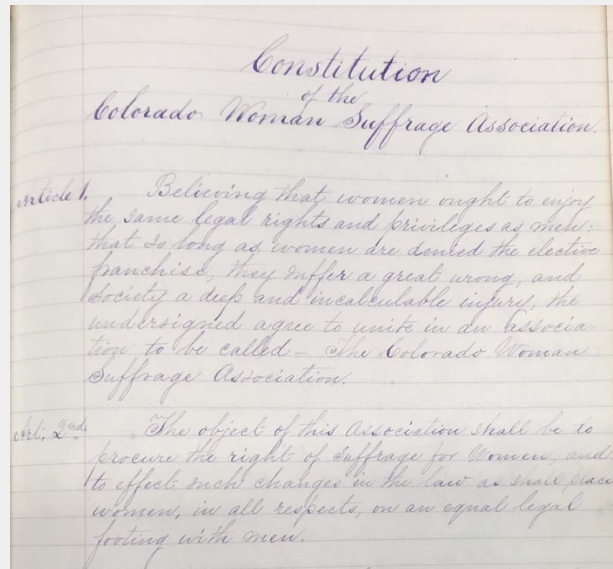 Constitution
of the
Colorado Woman Suffrage Association.
Article 1. Believing that women ought to enjoy
the same legal rights and privileges as men:
that so long as women are denied the elective
franchise, they suffer a great wrong, and
society a deep and incalculable injury, the
undersigned agree to unite in an Associa-
tion to be called – The Colorado Woman
Suffrage Association.
Art. 2nd. The object of this Association shall be to
procure the right of Suffrage for Women, and
to effect such changes in the law as shall place
women, in all respects, on an equal legal
footing with men.